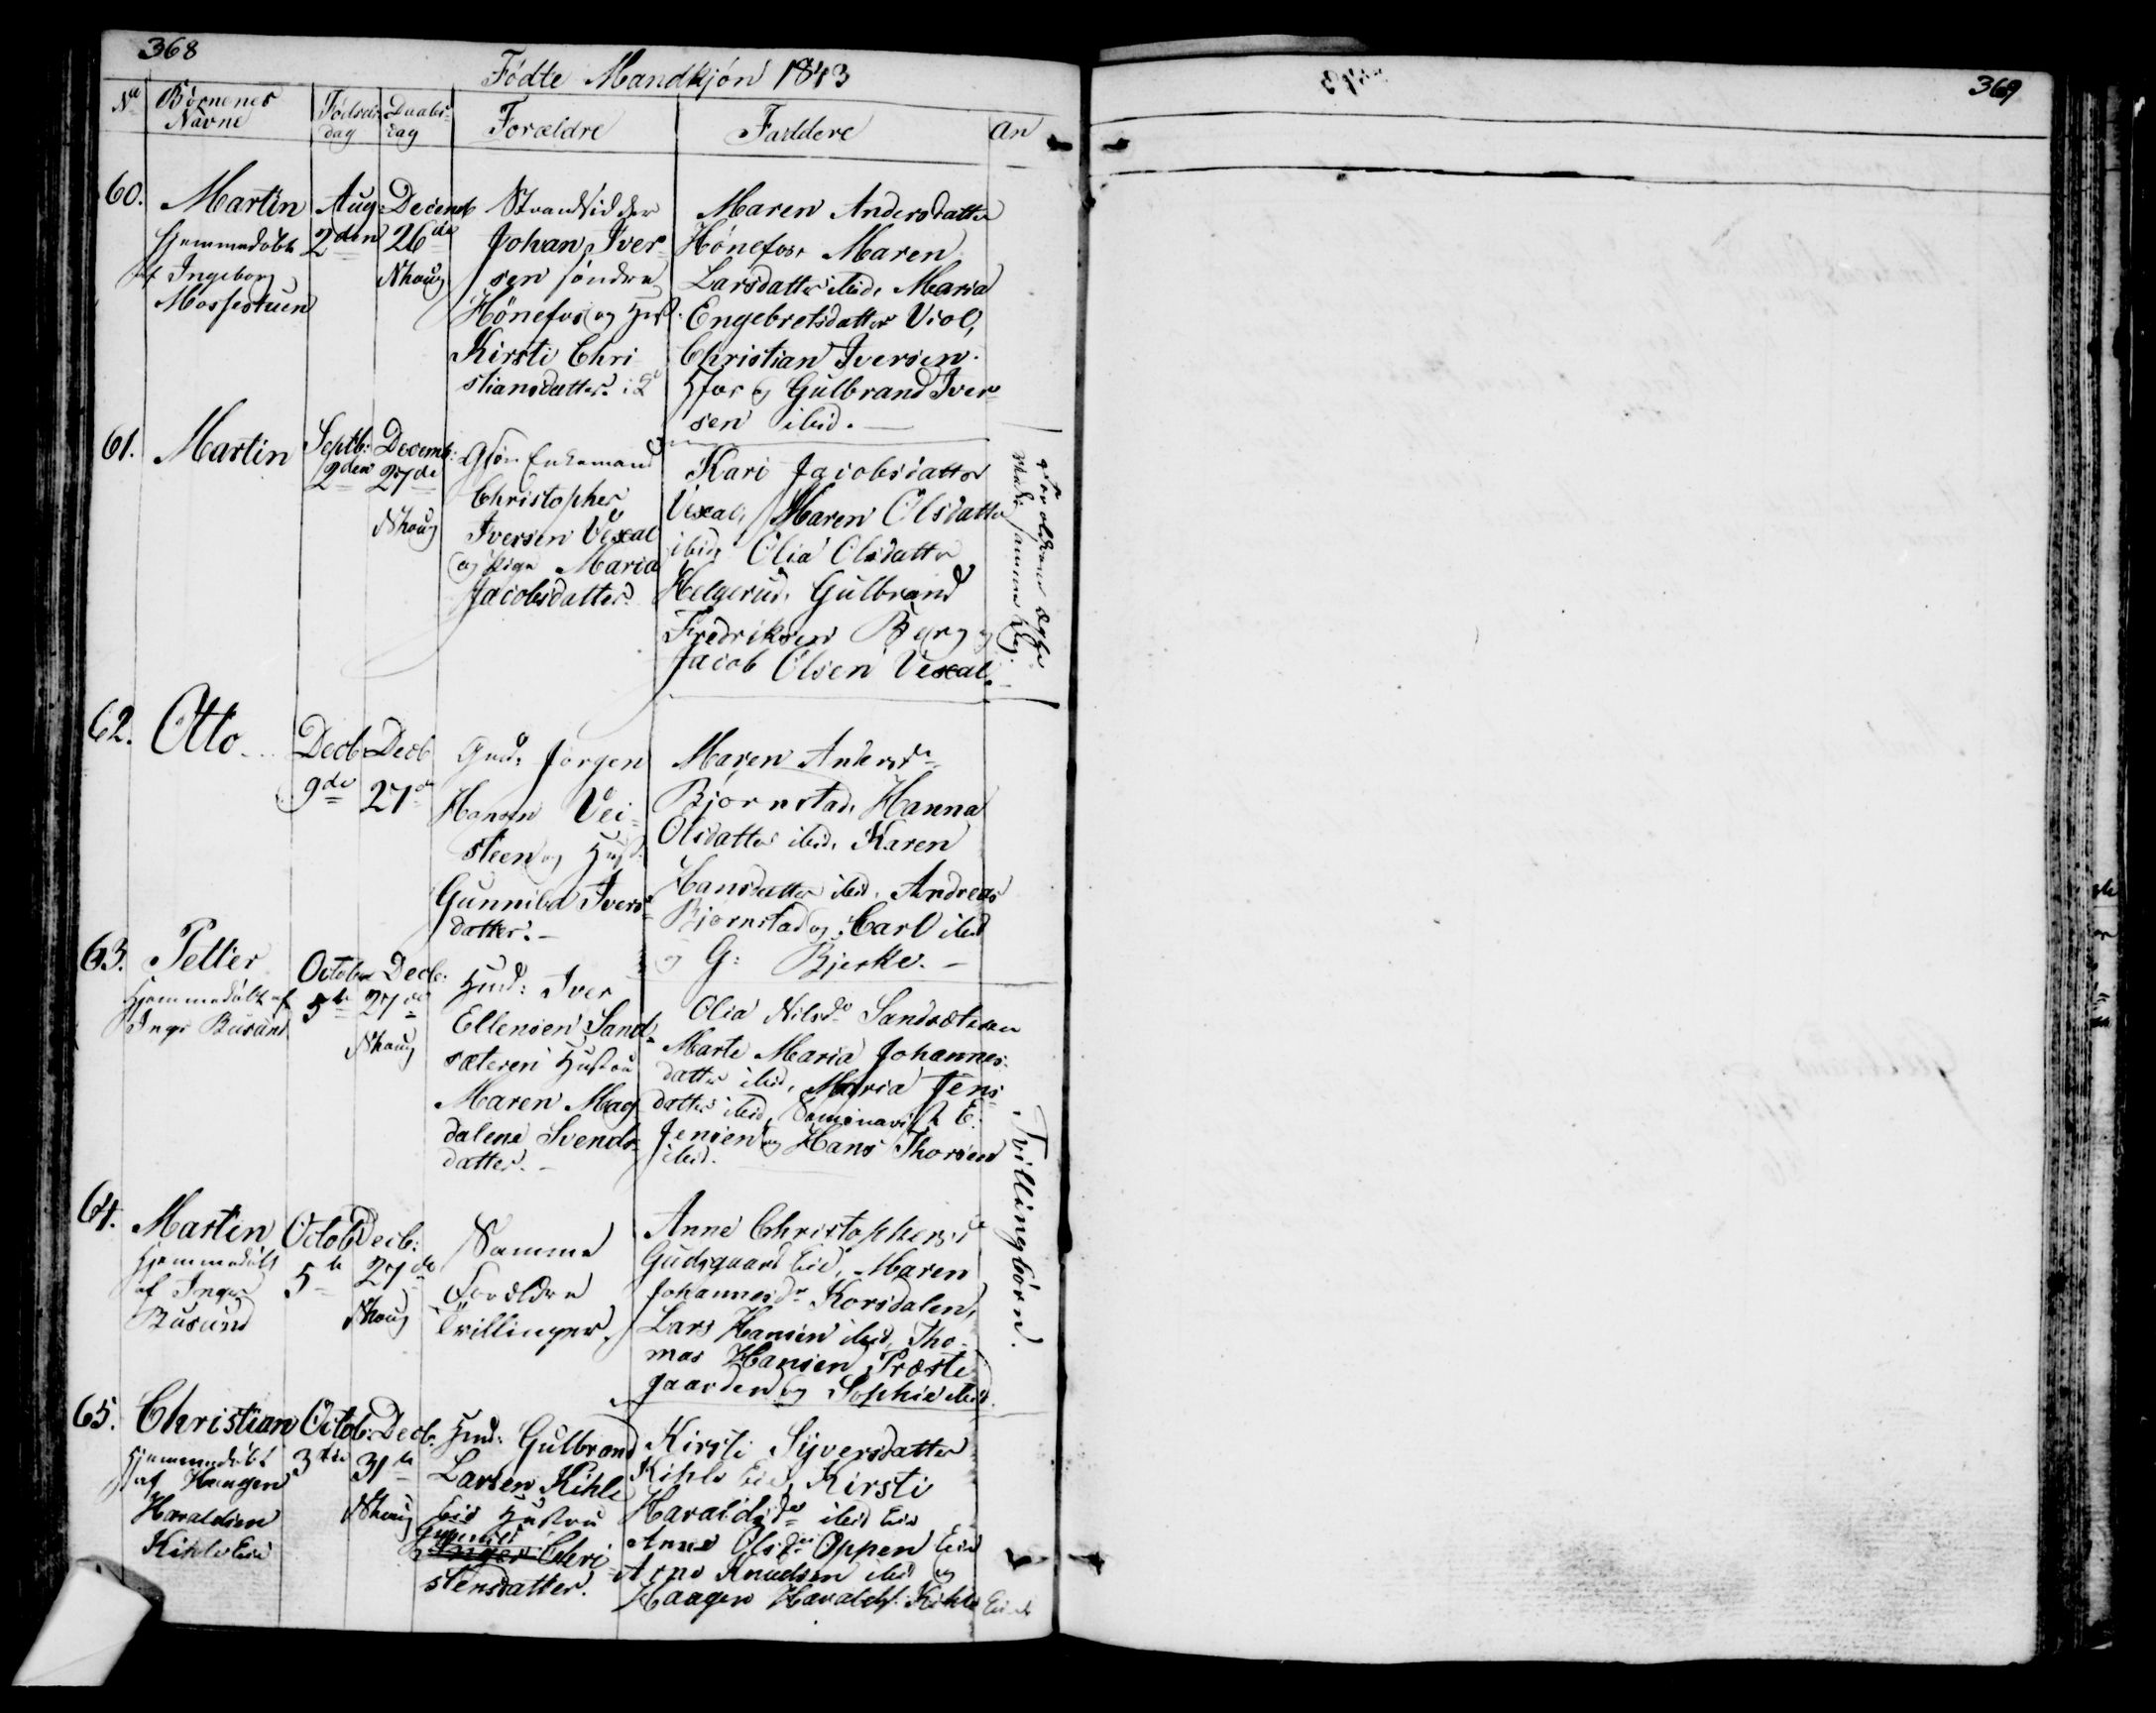 368
Fødte Mandkjøn 1843
No Børnenes Navne Fødsels dag Daabs- dag Forældre Faddere An
60. Martin
Hjemmedøbt
af Ingeborg
Mosestuen
Aug:
2den
Decemb
26de
Nhoug
Strandsidder
Johan Iver-
sen søndre
Hønefos og Hust.
Kirsti Chri
stiansdatter.
Maren Andersdatter
Hønefos, Maren
Larsdatter ibid, Maria
Engebretsdatter Viol,
Christian Iversen
Hfos og Gulbrand Iver-
sen ibid.
61. Martin
Septb:
2den
Decemb:
27de
Nhoug
Enkemand
Christopher
Iversen Vexal
og Pige Maria
Jacobsdatter.
Kari Jacobsdatter
Vexal, Maren Olsdatter
ibid, Olia Olsdatter
Helgerud, Gulbrand
Fredriksen Berg og
Jacob Olsen Vexal.
62. Otto
Decb
9de
Decb
27de
Gmd: Jørgen
Hansen Vei-
steen og Hust.
Gunnild Ivers-
datter.
Maren Andersdr
Bjørnstad, Hanna
Olsdatter ibid, Karen
Hansdatter ibid, Andreas
Bjørnstad og Carl ibid
og G: Bjerke.
63. Petter
Hjemmedøbt af
Inge Busund
October
5te
Decb:
27de
Nhoug
Husd: Iver
Ellensen Sand-
sæteren Hustru
Maren Mag
dalene Svends-
datter.
Olia Nilsdr Sandsæteren
Marte Maria Johannes-
datter ibid, Maria Jens-
datter ibid, Seminarist E:
Jensen og Hans Thorsen
ibid.
Tvillingbørn.
64. Martin
Hjemmedøbt
af Inger
Busund
Octob
5te
Decb:
27de
Nhoug
Samme
Forældre
Tvillinger
Anne Christophersdr
Gudsgaard Eie, Maren
Johannesdr Korsdalen,
Lars Hansen ibid, Tho-
mas Hansen Præste
gaarden og Sophie ibid.
65. Christian
Hjemmedøbt
af Haagen
Haraldsen
Kihle Eie
Octob:
3die
Decb.
31te
Nhoug
Husd: Gulbrand
Larsen Kihle
Eie Hustru
Inger Chri
stensdatter.
Kirsti Syversdatter
Kihle Eie, Kirsti
Haraldsdr ibid Eie
Anne Olsdr Oppen Eie
Arne Knudsen ibid og
Haagen Haralds. Kihle Eie
369